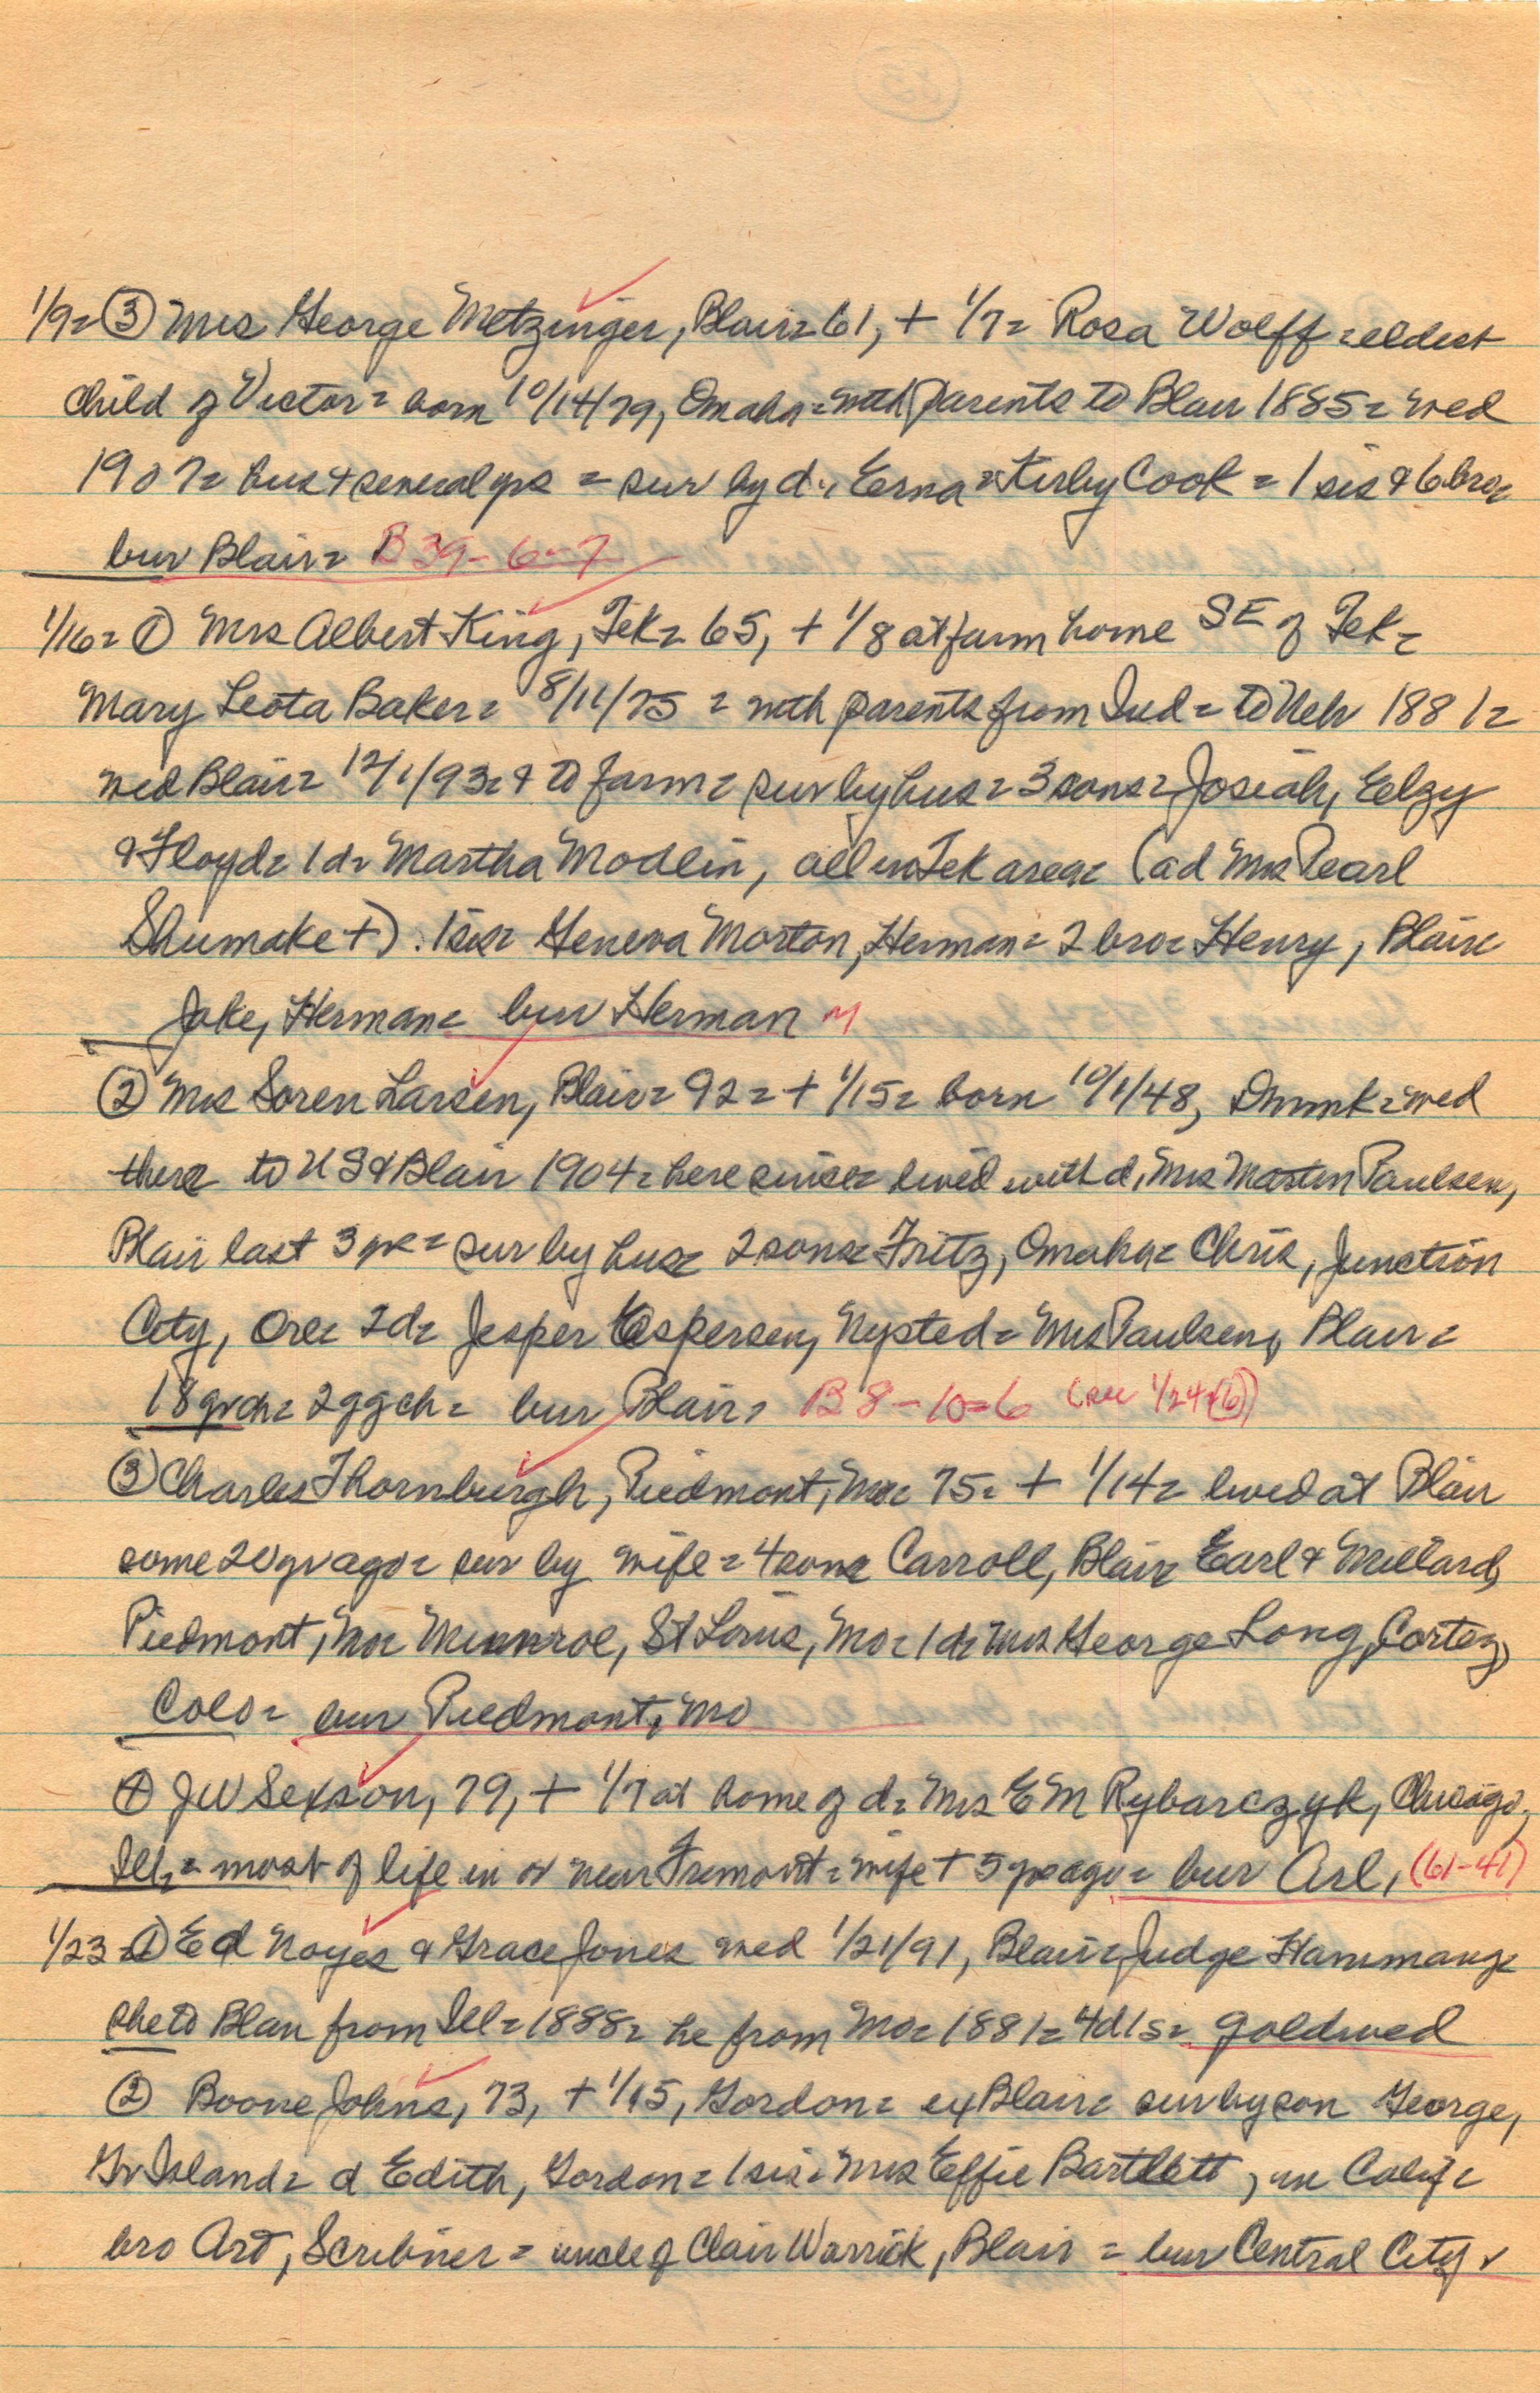 1/9= ③ Mrs George Metzinger, Blair= 61, + 1/7= Rosa Wolff = eldest
child of Victor= born 10/14/79, Omaha= with parents to Blair 1885= wed
1907= hus + several yrs = sur by d, Erna = Kirby Cook = 1 sis & 6 bro=
bur Blair= B 39-6-7
1/16= ① Mrs Albert King, Tek= 65, + 1/8 at farm home SE of Tek=
Mary Leota Baker= 8/11/75 = with parents from Ind= to Neb 1881=
wed Blair= 12/1/93= & to farm= sur by hus= 3 sons= Josiah, Elzy
& Floyd= 1 d= Martha Modlin, all in Tek area= (a d Mrs Pearl
Shumake +). 1 sis= Geneva Morton, Herman= 2 bro= Henry, Blair=
Jake, Herman= bur Herman M
② Mrs Soren Larsen, Blair= 92= + 1/15= born 10/1/48, Dnmk= wed
there to US & Blair 1904= here since= lived with d, Mrs Martin Paulsen,
Blair last 3 yr= sur by hus= 2 sons= Fritz, Omaha= Chris, Junction
City, Ore= 2 d= Jesper Espersen, Nysted= Mrs Paulsen, Blair=
18 grch= 2 ggch= bur Blair= B 8-10-6 (see 1/24 ⑥)
③ Charles Thornburgh, Piedmont, Mo= 75= + 1/14= lived at Blair
some 20 yr ago= sur by wife= 4 sons Carroll, Blair= Earl & Millard,
Piedmont, Mo= Munroe, St Louis, Mo= 1 d= Mrs George Long, Cortez,
Colo= bur Piedmont, Mo
④ J W Sexson, 79, + 1/7 at home of d= Mrs E M Rybarczyk, Chicago,
Ill= most of life in or near Fremont= wife + 5 yrs ago= bur Arl, (61-41)
1/23= ① Ed Noyes & Grace Jones wed 1/21/91, Blair= Judge Hammang=
she to Blair from Ill= 1888= he from Mo= 1881= 4 d 1 s= gold wed
② Boone Johns, 73, + 1/15, Gordon= ex Blair= sur by son George,
Gr Island= d Edith, Gordon= 1 sis= Mrs Effie Bartlett, in Calif=
bro Art, Scribner= uncle of Clair Warrick, Blair = bur Central City